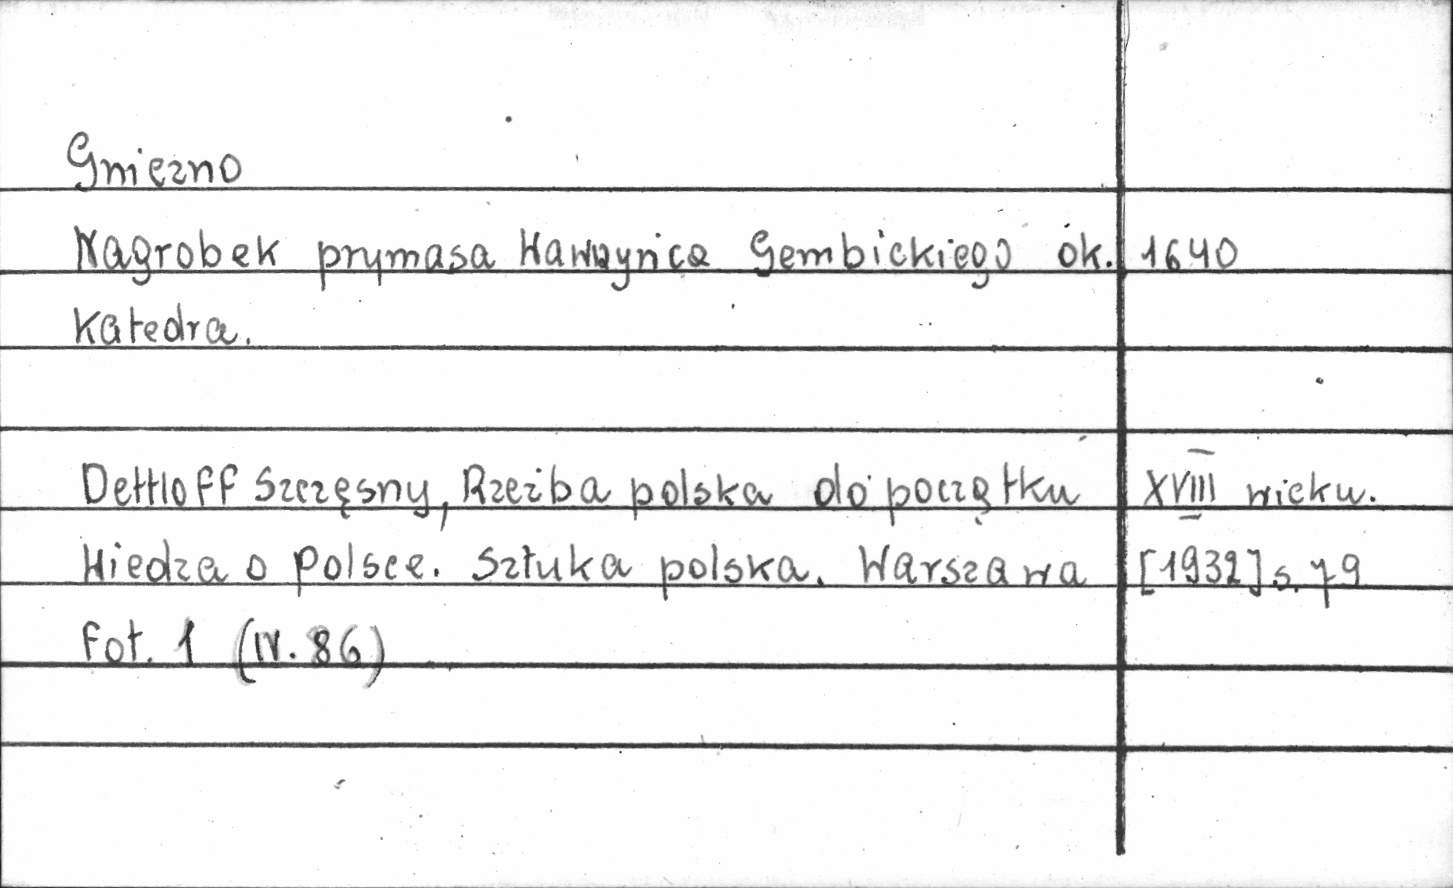 Gniezno
Nagrobek prymasa Wawrzyńca Gembickiego ok. 1640
Katedra.
Dettloff Szczęsny, Rzeźba polska do początku XVIII wieku.
Wiedza o Polsce. Sztuka polska. Warszawa [1932] s. 79
Fot. 1 (IV. 86)